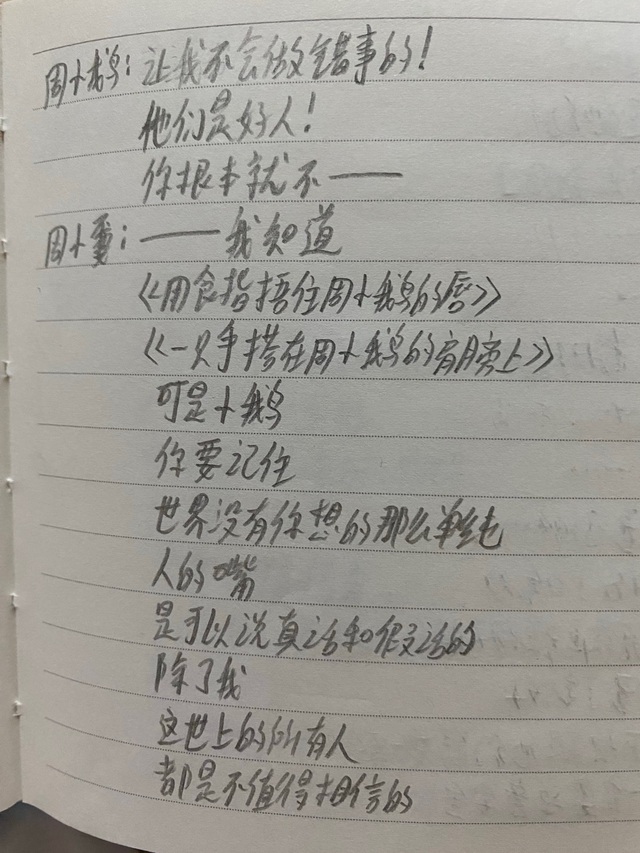 周小鹅：让我不会做错事的！
他们是好人！
你根本就不——
周小：——我知道
《用食指捂住周小鹅的唇》
《一只手搭在周小鹅的肩膀上》
可是小鹅
你要记住
世界没有你想的那么单纯
人的嘴
是可以说真话和假话的
除了我
这世上的所有人
都是不值得相信的